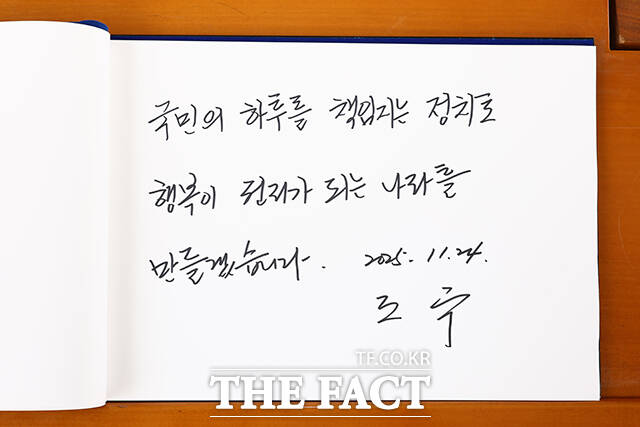 국민의 하루를 책임지는 정치로
행복이 권리가 되는 나라를
만들겠습니다. 2025. 11. 24.
조 국
TF.CO.KR
THE FACT